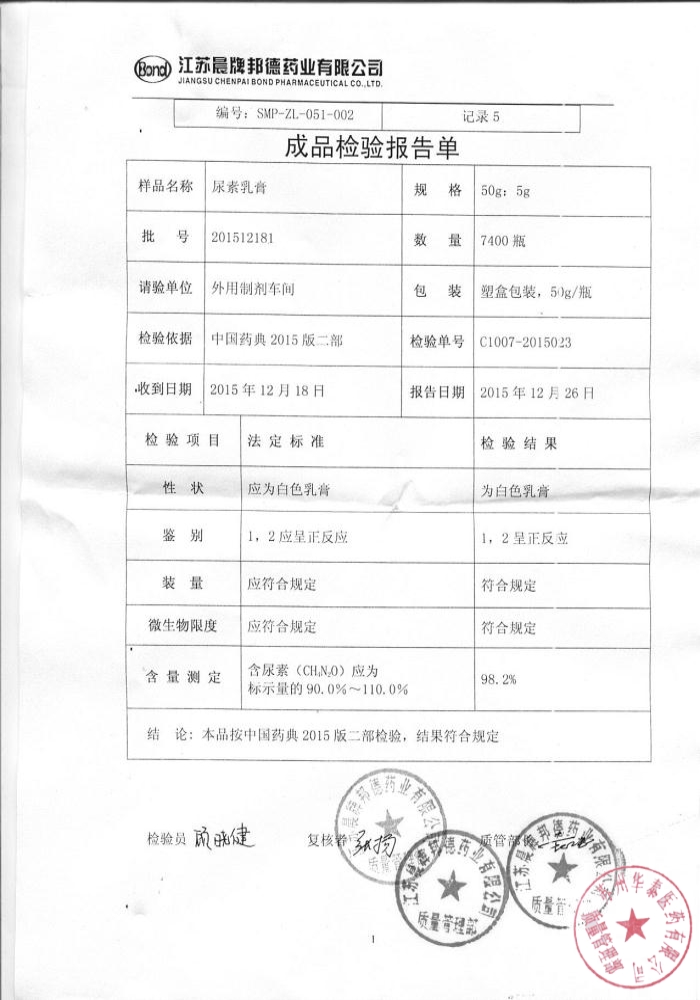 Bond 江苏晨牌邦德药业有限公司
JIANGSU CHENPAI BOND PHARMACEUTICAL CO.,LTD.
编号：SMP-ZL-051-002 记录5
成品检验报告单
样品名称 尿素乳膏 规 格 50g：5g
批 号 201512181 数 量 7400瓶
请验单位 外用制剂车间 包 装 塑盒包装，50g/瓶
检验依据 中国药典2015版二部 检验单号 C1007-2015023
收到日期 2015年12月18日 报告日期 2015年12月26日
检 验 项 目 法 定 标 准 检 验 结 果
性 状 应为白色乳膏 为白色乳膏
鉴 别 1，2应呈正反应 1，2呈正反应
装 量 应符合规定 符合规定
微生物限度 应符合规定 符合规定
含 量 测 定 含尿素（CH₄N₂O）应为
标示量的90.0%～110.0% 98.2%
结 论：本品按中国药典2015版二部检验，结果符合规定
检验员 顾晓健 复核者 质管部
江苏晨牌邦德药业有限公司
质量管理部
江苏晨牌邦德药业有限公司
质量管
晨牌邦德药业有限公司
质量管
华泰医药有限公司
1